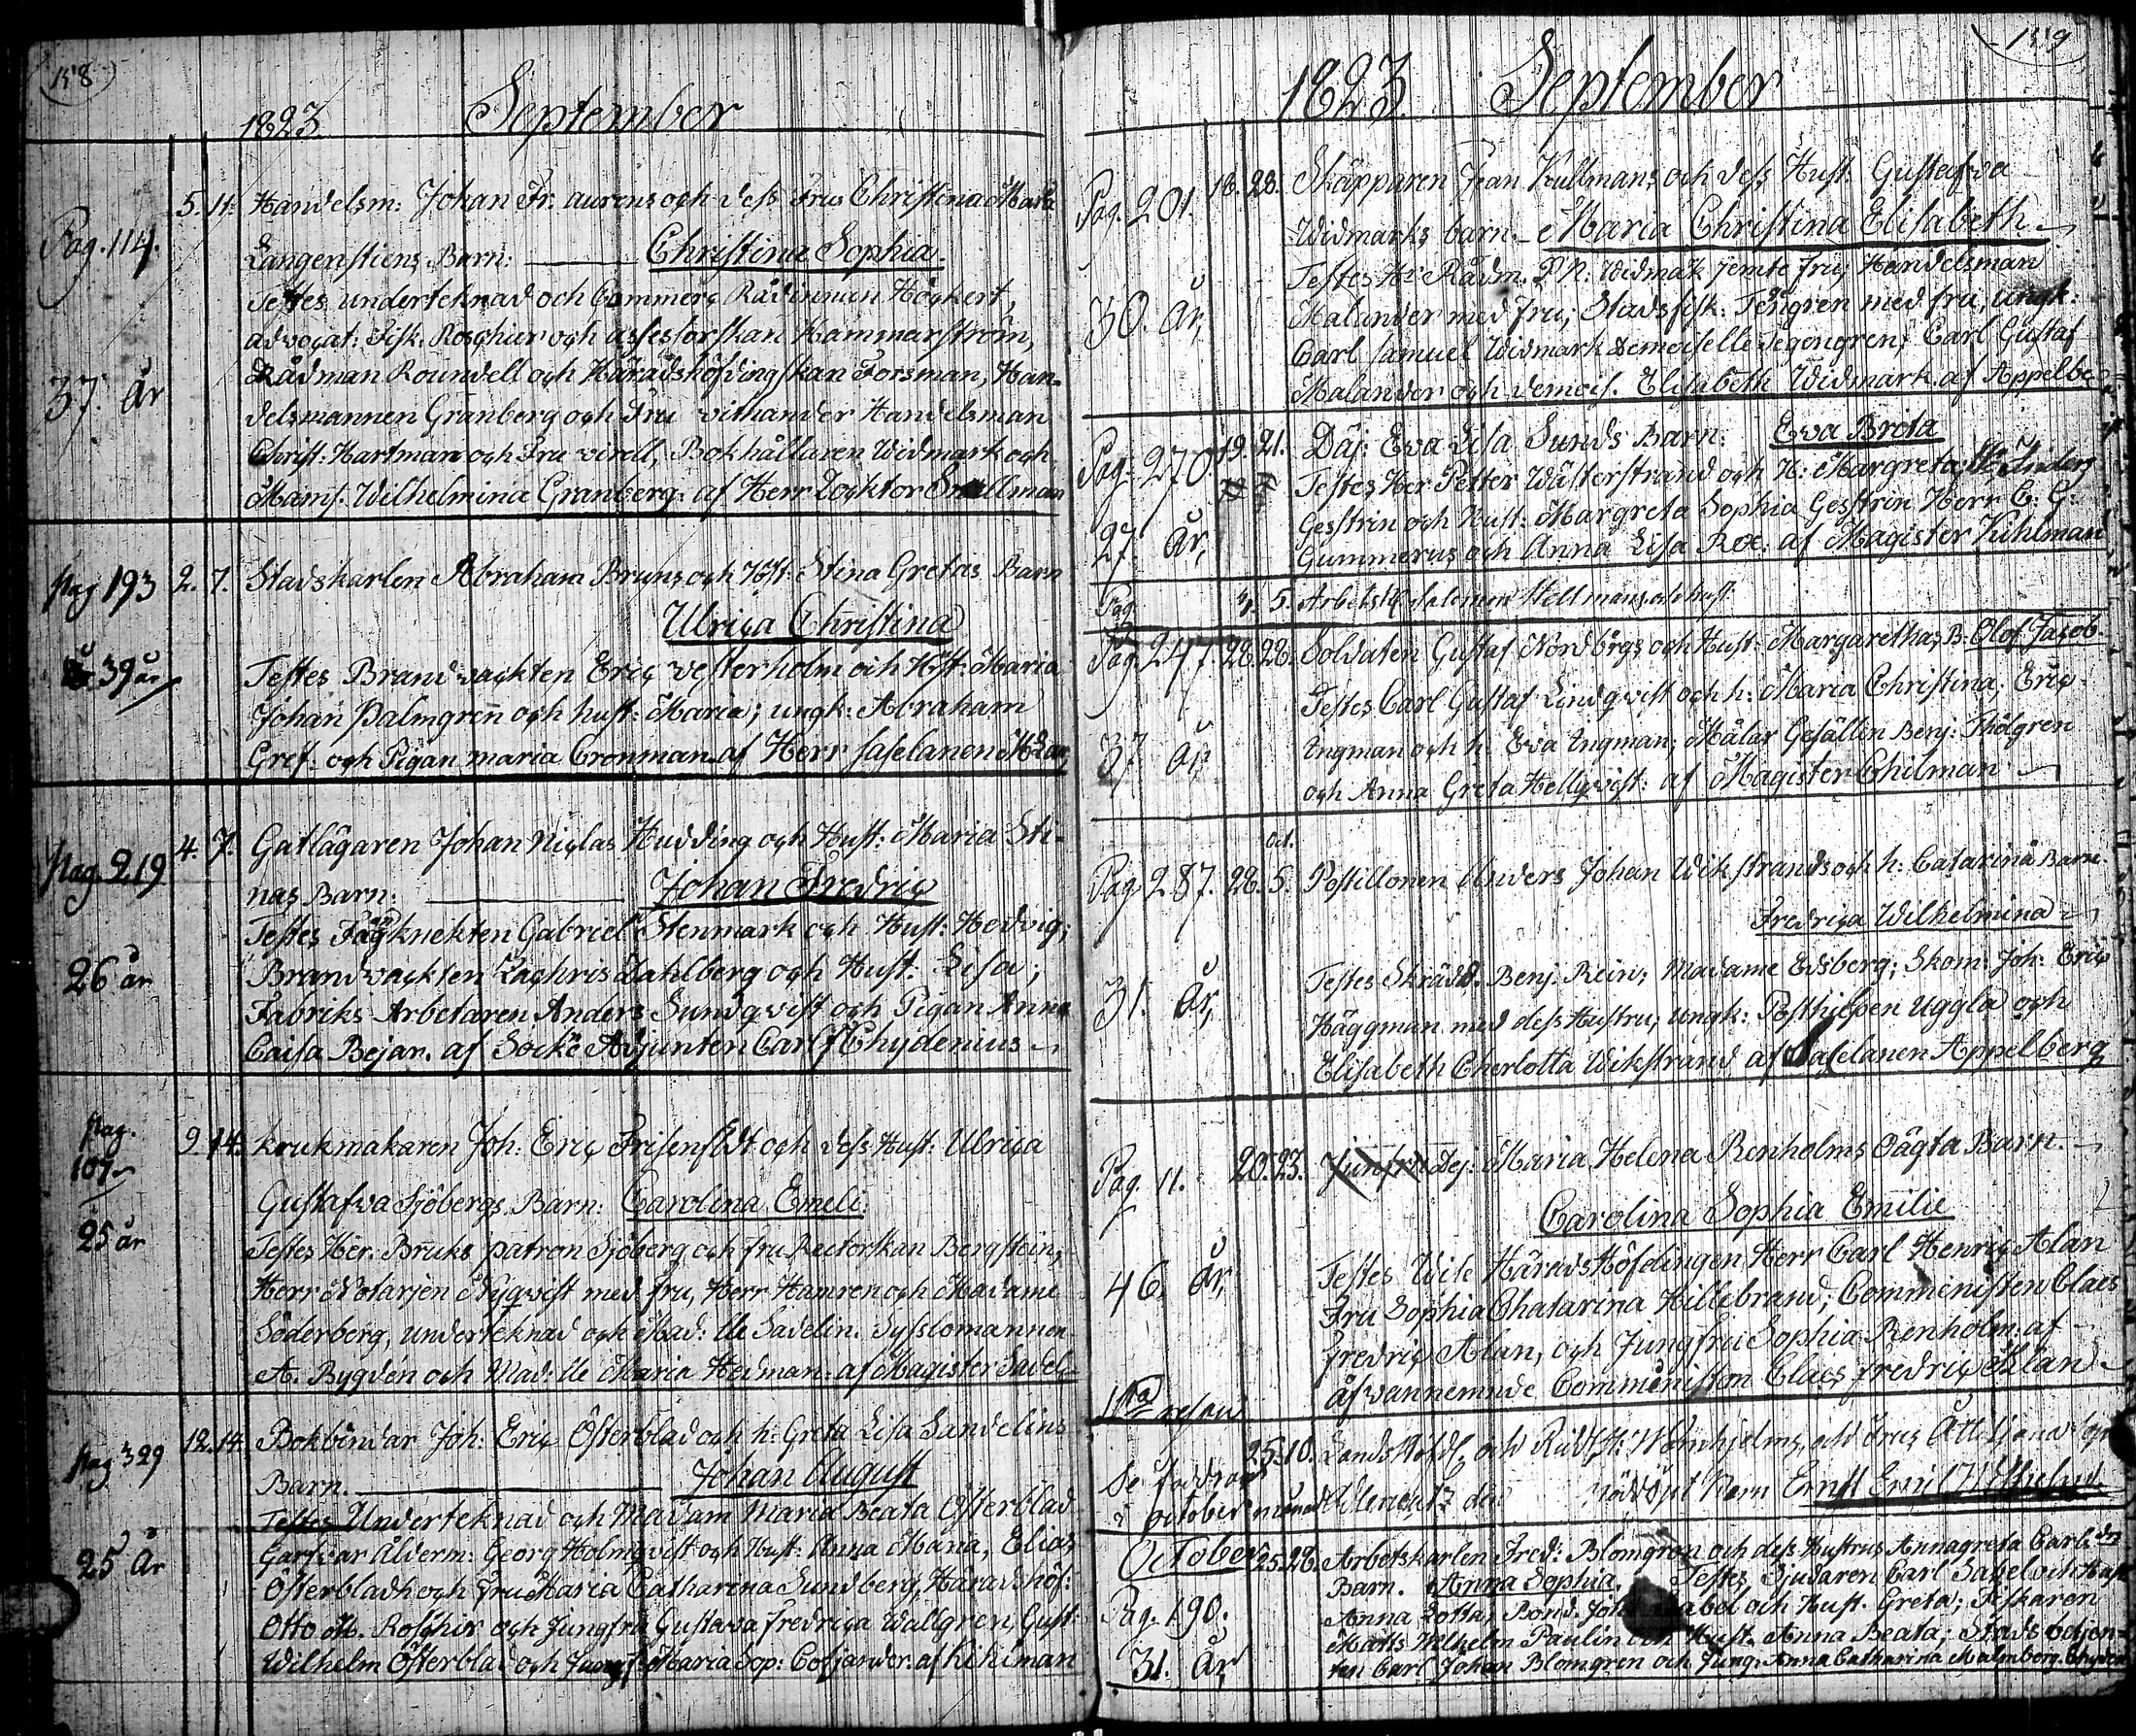 158
1823 September
Pag. 114. 5. 11. Handelsm: Johan Fr. aurens och dess Frus Christina Maria
Langenstiens Barn: Christina Sophia.
Testes underteknad och Commerς Rådinnan Höckert,
advocat: Fisk. Roschier och assessorskan Hammarström,
37. År Rådman Roundell och Häradshöfdingskan Forsman, Han-
delsmannen Granberg och Fru vithander Handelsman
Christ: Hartman och Fru virell, Bokhållaren Widmark och
Mams. Wilhelmina Granberg. af Herr Docktor
Pag 193 2. 7. Stadskarlen Abraham Bruns och Höst: Stina Gretas Barn
Ulrica Christina
39 år Testes Brandvackten Eric vesterholm och Höst: Maria
Johan Palmgren och hust: Maria; ungk: Abraham
Gref: och Pigan maria Cronman af Herr saselanen
Pag. 219 4. 7. Gatlägaren Johan Niclas Hudding och Hust: Maria Sti-
nas Barn: Johan Fredric
Testes Fågknekten Gabriel Stenmark och Hust: Hedvig;
26 år Brandvackten Zachris Dahlberg och Hust. Lisa;
Fabriks Arbetaren Anders Sundqvist och Pigan Anna
Caisa Bejar. af Socke Adjunten Carl Chydenius
Pag. 107 9. 14. krukmakaren Joh: Eric Frisenfldt och dess Hust: Ulrica
Gustafva Sjöbergs Barn: Carolina Emeli.
25 år Testes Her. Bruks patron Sjöberg och fru Rectorskan Bergstein,
Herr Notarjen Nyqvist med fru, Herr Hamren och Madame
Söderberg, underteknad och Mad: lle Sadelin. Sysslomannen
A. Bygdén och Mad: lle Maria Heiman. af Magister Sadel:
Pag 329 12. 14. Bokbindar Joh: Eric Österblad och h: Greta Lisa Sandelins
Barn. Johan August
Testes Underteknad och Madam Maria Beata Österblad
25 År Garfvar Ålderm: Georg Holmqvist och Hust: Anna Maria, Elias
Österbladh och fru Maria Catharina Sundberg, Häradshöf:
Otto M. Roschir och Jungfru Gustava Fredrica Wallgren, Gust:
Wilhelm Österblad och Jungf: Maria Sop: Cajander. af Kihlman
159
1823. September
Pag. 201. 18. 28. Skäpparen Jean Kullmans och dess Hust: Gustafva
Widmarks barn. Maria Christina Elisabeth
Testes Hr Rådm. P N: Widmak jemte fru, Handelsman
30. År, Malander med fru; Stadsfisk: Tengren med fru, ungk:
Carl samuel Widmark Demoiselle Tegengren, Carl Gustaf
Malander och demois. Elisabeth Widmark. af Appelbe
Pag. 270. 19. 21. Däj: Eva Lisa Sunds Barn: Eva Brita
Testes Her Petter Wästerstrand och H: Margreta
Gestrin och Hust: Margreta Sophia Gestrin Herr C: G:
27. År, Gummerus och Anna Lisa Roe: af Magister Kihlman
Pag 5. Arbetsk Salomon Hellmans och hust
Pag. 247. 28. 28. Soldaten Gustaf Nordbergs och Hust: Margarethas B: Olof Jacob.
Testes Carl Gustaf Lindqvist och h: Maria Christina; Eric
37 År, Ingman och h: Eva Ingman; Målar Gesällen Benj: Thölgren
och Anna Greta Hellqvist: af Magister Chilman
Oct.
Pag 287. 28. 5. Postillonen Anders Johan Wikstrands och h: Catarina Barn.
Fredrica Wilhelmina
Testes Skrädd. Benj. Rein; Madame Edsberg; Skom: Joh: Eric
31. År, Häggman med dess Hustru; ungk: Posthielpen Uggla och
Elisabeth Cherlotta Wikstrand af Saselanen Appelberg
Pag. 11. 20. 23. Junfru Dej: Maria Helena Renholms Oägta Barn.
Carolina Sophia Emilie
46. År, Testes Wise HäradsHöfdingen Herr Carl Henric Alan
Fru Sophia Chatarina Hillebrand; Comministen Claes
Fredric Alan, och Jungfru Sophia Renholm: af
åfvannemnde Comministen Claes fredric Alan
25. 10. och Frus
Se faddrar
i october månad nöddöpt Barn Ernst Emil Wilhelm
October 25. 28. Arbetskarlen Fred: Blomgren och dess Hustrus Annagreta Carls dr
Barn. Anna Sophia. Testes Sjudaren Carl Sabel och Hust
Pag. 190; Anna Lotta, Bond. Joh Sabel och Hust. Greta; Fiskaren
Matts Wilhelm Paulin och Hust. Anna Beata; Stads betjen-
31. År, ten Carl Johan Blomgren och Jung: Anna Catharina Malmborg. Chyden